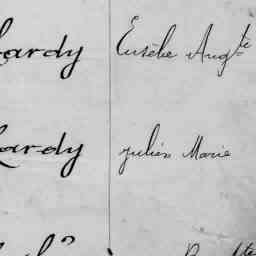 Hardy Eusèbe Augte
Hardy Julien Marie